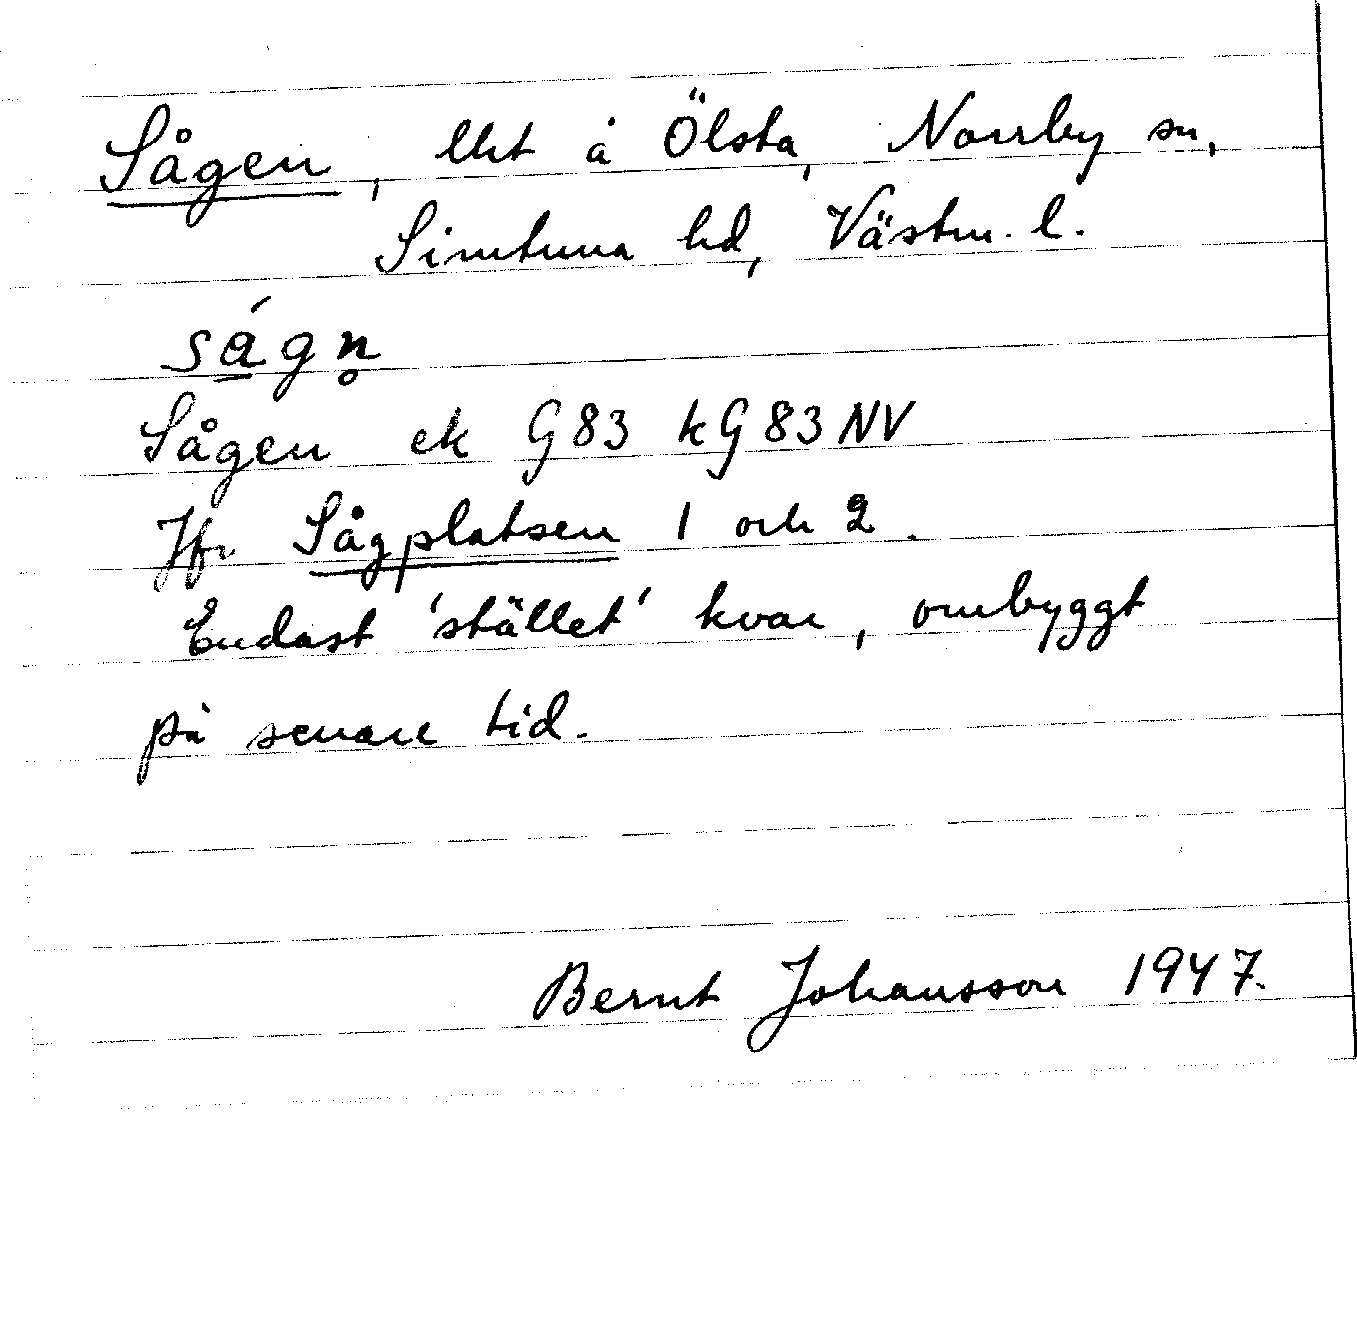 Sågen, lht å Ölsta, Norrby sn,
Simtuna hd, Västm. l.
ság̀n̥
Sågen ek G83 kG83NV
Jfr Sågplatsen 1 och 2.
Endast 'stället' kvar, ombyggt
på senare tid.
Bernt Johansson 1947.